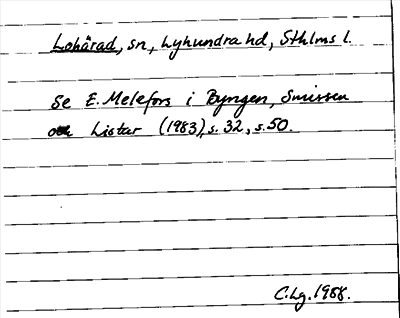 Lohärad, sn, Lyhundra hd, Sthlms l.
Se E. Melefors i Byngen, Smissen
och Listar (1983), s. 32, s. 50.
C. Lg. 1988.